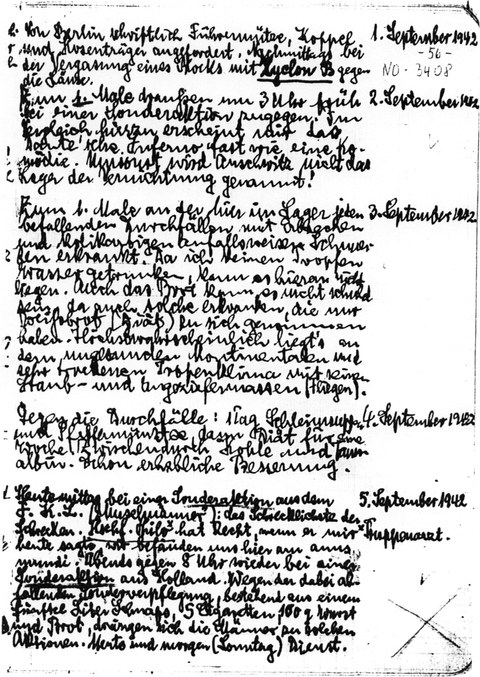 Von Berlin schriftlich Führermütze, Koppel 1. September 1942
und Hosenträger angefordert. Nachmittags bei
- 56 -
der Vergasung eines Blocks mit Zyclon B gegen
NO - 3408
die Läuse.
Zum 1. Male draußen um 3 Uhr früh 2. September 1942
bei einer Sonderaktion zugegen. Im
Vergleich hierzu erscheint mir das
Dante'sche Inferno fast wie eine Ko-
mödie. Umsonst wird Auschwitz nicht das
Lager der Vernichtung genannt!
Zum 1. Male an den hier im Lager jeden 3. September 1942
befallenden Durchfällen mit Erbrechen
und kolikartigen anfallsweisen Schmer-
zen erkrankt. Da ich keinen Tropfen
Wasser getrunken, kann es hieran nicht
liegen. Auch das Brot kann es nicht schuld
sein, da auch solche erkranken, die nur
Weissbrot (Diät) zu sich genommen
haben. Höchstwahrscheinlich liegt's an
dem ungesunden kontinentalen und
sehr trockenen Tropenklima mit seinen
Staub- und Ungeziefermassen (Fliegen).
Gegen die Durchfälle: 1 Tag Schleimsuppen 4. September 1942
und Pfefferminztee, dann Diät für eine
Woche. Zwischendurch Kohle und Tann-
albin. Schon erhebliche Besserung.
Heute mittag bei einer Sonderaktion aus dem 5. September 1942
F.K.L. (Muselmänner): das Schrecklichste der
Schrecken. Hschf. Thilo hat Recht, wenn er mir Truppenarzt.
heute sagte, wir befänden uns hier am anus
mundi. Abends gegen 8 Uhr wieder bei einer
Sonderaktion aus Holland. Wegen der dabei ab-
fallenden Sonderverpflegung, bestehend aus einem
fünftel Liter Schnaps, 5 Zigaretten 100 g Wurst
und Brot, drängen sich die Männer zu solchen
Aktionen. Heute und morgen (Sonntag) Dienst.